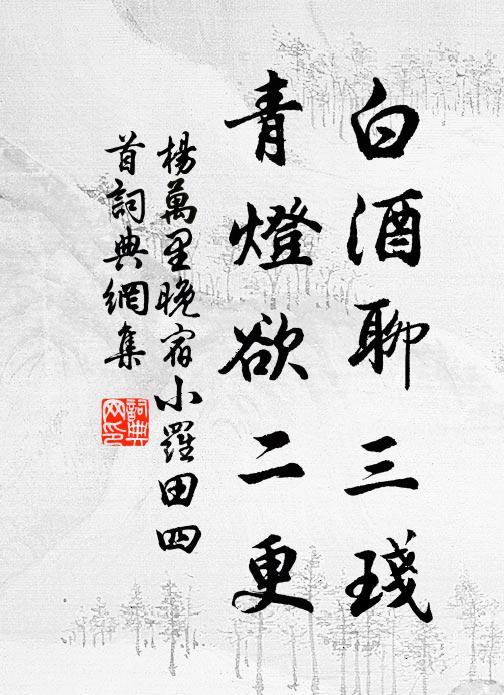 白酒聊三琖
青燈欲二更
楊萬里晚宿小羅田四
首詞典網集
詞典
网印